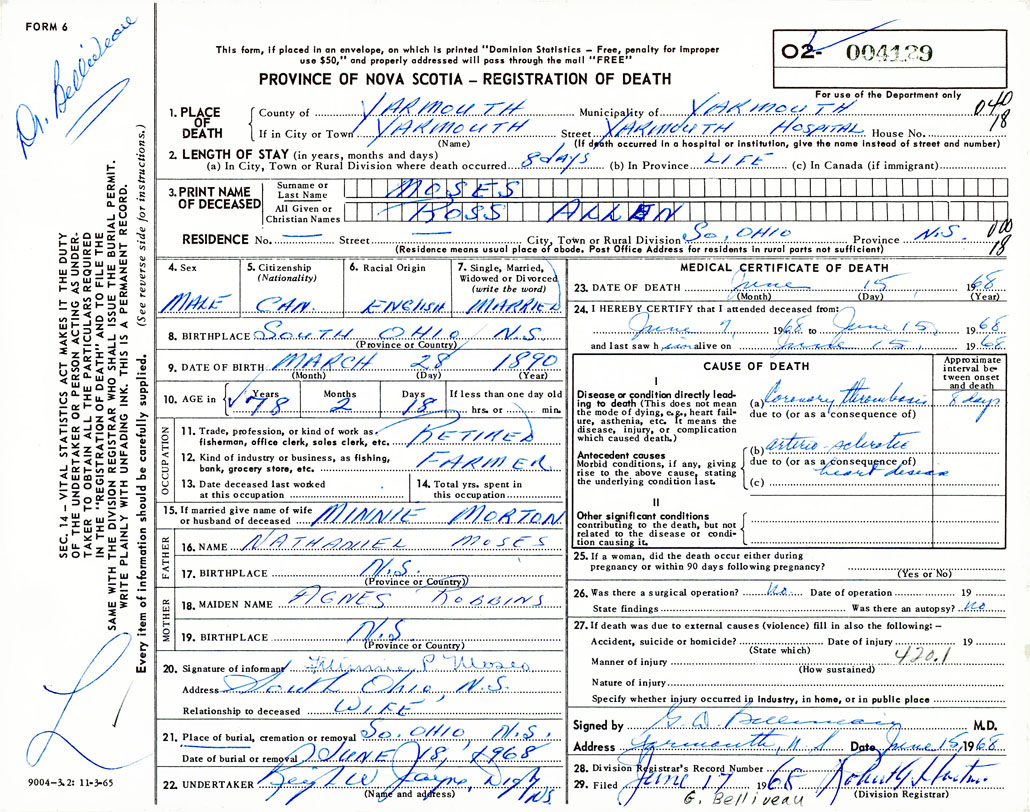 FORM 6
Dr. Belliveau
This form, if placed in an envelope, on which is printed "Dominion Statistics – Free, penalty for improper
use $50," and properly addressed will pass through the mail "FREE"
PROVINCE OF NOVA SCOTIA – REGISTRATION OF DEATH
02- 004129
For use of the Department only
040
18
1. PLACE OF DEATH
County of YARMOUTH Municipality of YARMOUTH
If in City or Town YARMOUTH Street YARMOUTH HOSPITAL House No.
(Name) (If death occurred in a hospital or institution, give the name instead of street and number)
2. LENGTH OF STAY (in years, months and days)
(a) In City, Town or Rural Division where death occurred 8 days (b) In Province LIFE (c) In Canada (if immigrant)
3. PRINT NAME OF DECEASED
Surname or Last Name MOSES
All Given or Christian Names ROSS ALLEN
RESIDENCE No. — Street — City, Town or Rural Division So. OHIO Province N.S.
(Residence means usual place of abode. Post Office Address for residents in rural parts not sufficient)
000
18
4. Sex MALE
5. Citizenship (Nationality) CAN.
6. Racial Origin ENGLISH
7. Single, Married, Widowed or Divorced (write the word) MARRIED
8. BIRTHPLACE SOUTH OHIO N.S.
(Province or Country)
9. DATE OF BIRTH MARCH 28 1890
(Month) (Day) (Year)
10. AGE in Years 78 Months 2 Days 18 If less than one day old hrs. or min.
OCCUPATION
11. Trade, profession, or kind of work as fisherman, office clerk, sales clerk, etc. RETIRED
12. Kind of industry or business, as fishing, bank, grocery store, etc. FARMER
13. Date deceased last worked at this occupation
14. Total yrs. spent in this occupation
15. If married give name of wife or husband of deceased MINNIE MORTON
FATHER
16. NAME NATHANIEL MOSES
17. BIRTHPLACE N.S.
(Province or Country)
MOTHER
18. MAIDEN NAME AGNES ROBBINS
19. BIRTHPLACE N.S.
(Province or Country)
20. Signature of informant Minnie P Moses
Address South Ohio, N.S.
Relationship to deceased WIFE
21. Place of burial, cremation or removal So. OHIO, N.S.
Date of burial or removal JUNE 18, 1968
22. UNDERTAKER
(Name and address) N.S.
MEDICAL CERTIFICATE OF DEATH
23. DATE OF DEATH June 15 1968
(Month) (Day) (Year)
24. I HEREBY CERTIFY that I attended deceased from:
June 7, 1968 to June 15, 1968
and last saw him alive on June 15, 1968
CAUSE OF DEATH
Approximate interval between onset and death
I
Disease or condition directly leading to death (This does not mean the mode of dying, e.g., heart failure, asthenia, etc. It means the disease, injury, or complication which caused death.)
(a) Coronary thrombosis 8 days
due to (or as a consequence of)
Antecedent causes
Morbid conditions, if any, giving rise to the above cause, stating the underlying condition last.
(b) arterio-sclerotic
due to (or as a consequence of)
heart disease
(c)
II
Other significant conditions contributing to the death, but not related to the disease or condition causing it.
25. If a woman, did the death occur either during
pregnancy or within 90 days following pregnancy?
(Yes or No)
26. Was there a surgical operation? No Date of operation 19
State findings Was there an autopsy? No
27. If death was due to external causes (violence) fill in also the following: –
Accident, suicide or homicide? Date of injury 19
(State which) 420.1
Manner of injury
(How sustained)
Nature of injury
Specify whether injury occurred in Industry, in home, or in public place
Signed by G. D. Belliveau M.D.
Address Yarmouth, N.S. Date June 15, 1968
28. Division Registrar's Record Number
29. Filed June 17 1968
G. Belliveau (Division Registrar)
SEC. 14 – VITAL STATISTICS ACT MAKES IT THE DUTY
OF THE UNDERTAKER OR PERSON ACTING AS UNDER-
TAKER TO OBTAIN ALL THE PARTICULARS REQUIRED
IN THE "REGISTRATION OF DEATH" AND TO FILE THE
SAME WITH THE DIVISION REGISTRAR WHO SHALL ISSUE THE BURIAL PERMIT.
WRITE PLAINLY WITH UNFADING INK. THIS IS A PERMANENT RECORD.
Every item of information should be carefully supplied. (See reverse side for instructions.)
9004-3.2: 11-3-65